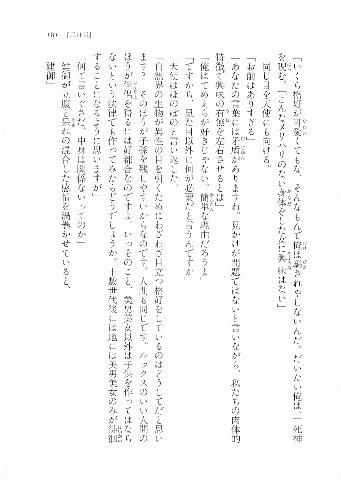 181　［二日目］
「いくら格好が可愛くてもな、そんなもんで俺は騙されやしないんだ。だいたい俺は」死神
を睨む。「こんなメリハリのない身体をしたなに興味はない」
同じ目を天使にも向ける。
「お前はありすぎる」
「あなたの言葉には矛盾がありますね。見かけが問題ではないと言いながら、私たちの肉体的
特徴で興味の有無を左右させるとは」
「俺はてめえらが好きじゃない。簡単な理由だろうよ」
「ですから、見た目以外に何が必要だと言うんですか」
天使はほのぼのと言い返した。
「自然界の生物が異性の目を引くためにわざわざ目立つ格好をしているのはどうしてだと思い
ます？　そのほうが子孫を残しやすいからなのです。人間も同じです。ルックスのいい人間の
ほうが伴侶を得るには好都合なのですよ。いっそのこと、美男美女以外は子供を作ってはなら
ないという法律でも作ってみたらどうでしょうか。十数世代後には地には美男美女のみが徘徊
することになるように思いますが」
「何て言いぐさだ。中身は関係ないってのか」
建御が立腹と呆れの混合した感情を渦巻かせていると、
「建御」